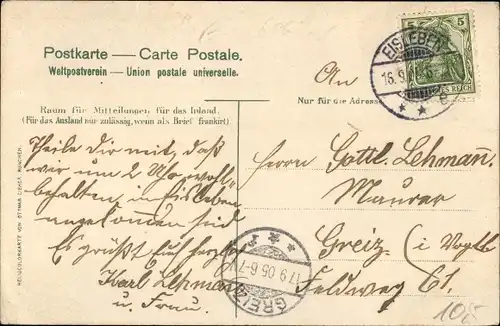 Postkarte — Carte Postale.
Weltpostverein — Union postale universelle.
An
Nur für die Adresse
Raum für Mitteilungen für das Inland.
(Für das Ausland nur zulässig, wenn als Brief frankirt)
Theile Dir mit, daß
wir um 2 Uhr wohl
behalten in Eisleben
angekommen sind
Es grüßt Euch herzlich
Karl Lehmann
u. Frau.
Herrn Gottl. Lehmann.
Maurer
Greiz (i Vogtl
Feldweg 61.
EISLEBEN
16.9
5 5
REICH
GREIZ
17.9.05.6-7V
105